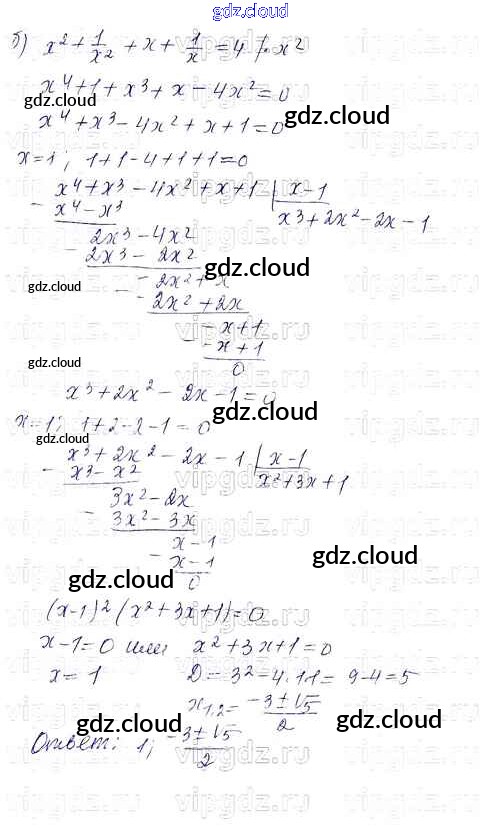 gdz.cloud
б) x² + 1/x² + x + 1/x = 4 | · x²
x⁴ + 1 + x³ + x − 4x² = 0
gdz.cloud
gdz.cloud
x⁴ + x³ − 4x² + x + 1 = 0
x = 1; 1 + 1 − 4 + 1 + 1 = 0
− x⁴ + x³ − 4x² + x + 1 | x − 1
x⁴ − x³ x³ + 2x² − 2x − 1
2x³ − 4x²
− 2x³ − 2x²
gdz.cloud
− −2x² + x
gdz.cloud
−2x² + 2x
− −x + 1
−x + 1
gdz.cloud
0
x³ + 2x² − 2x − 1 = 0
gdz.cloud
x = 1; 1 + 2 − 2 − 1 = 0
gdz.cloud
− x³ + 2x² − 2x − 1 | x − 1
x³ − x² x² + 3x + 1
3x² − 2x
− 3x² − 3x
x − 1
gdz.cloud
− x − 1
gdz.cloud
0
(x − 1)² (x² + 3x + 1) = 0
x − 1 = 0 или x² + 3x + 1 = 0
x = 1 D = 3² − 4 · 1 · 1 = 9 − 4 = 5
x₁,₂ = (−3 ± √5)/2
gdz.cloud
gdz.cloud
Ответ: 1; (−3 ± √5)/2
vipgdz.ru